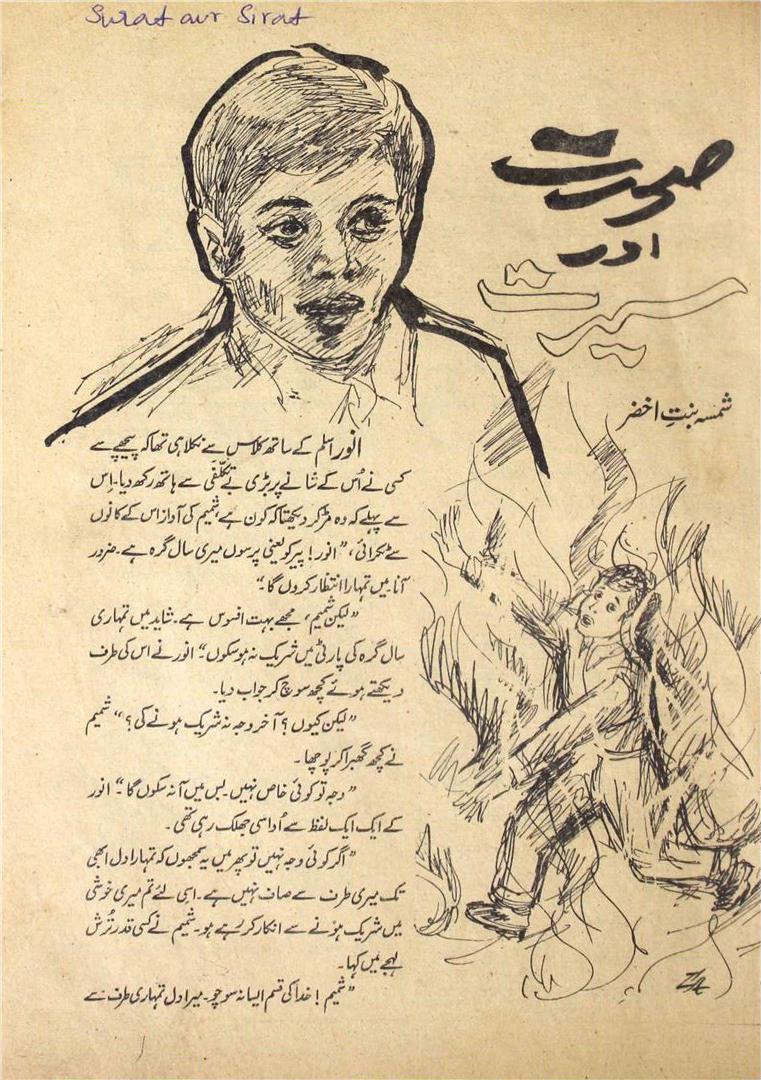 Surat aur Sirat
صورت
اور
سیرت
شمسہ بنتِ اخضر
انور اسلم کے ساتھ کلاس سے نکلا ہی تھا کہ پیچھے سے
کسی نے اُس کے شانے پر بڑی بے تکلّفی سے ہاتھ رکھ دیا۔ اِس
سے پہلے کہ وہ مڑ کر دیکھتا کہ کون ہے شمیم کی آواز اس کے کانوں
سے ٹکرائی، ”انور! پیر کو یعنی پرسوں میری سال گرہ ہے۔ ضرور
آنا۔ میں تمہارا انتظار کروں گا۔“
”لیکن شمیم، مجھے بہت افسوس ہے۔ شاید میں تمہاری
سال گرہ کی پارٹی میں شریک نہ ہو سکوں۔“ انور نے اس کی طرف
دیکھتے ہوئے کچھ سوچ کر جواب دیا۔
”لیکن کیوں؟ آخر وجہ نہ شریک ہونے کی؟“ شمیم
نے کچھ گھبرا کر پوچھا۔
”وجہ تو کوئی خاص نہیں۔ بس میں آ نہ سکوں گا۔“ انور
کے ایک ایک لفظ سے اُداسی جھلک رہی تھی۔
”اگر کوئی وجہ نہیں تو پھر میں یہ سمجھوں کہ تمہارا دل ابھی
تک میری طرف سے صاف نہیں ہے۔ اسی لئے تم میری خوشی
میں شریک ہونے سے انکار کر رہے ہو۔ شمیم نے کسی قدر تُرش
لہجے میں کہا۔
”شمیم! خدا کی قسم ایسا نہ سوچو۔ میرا دل تمہاری طرف سے